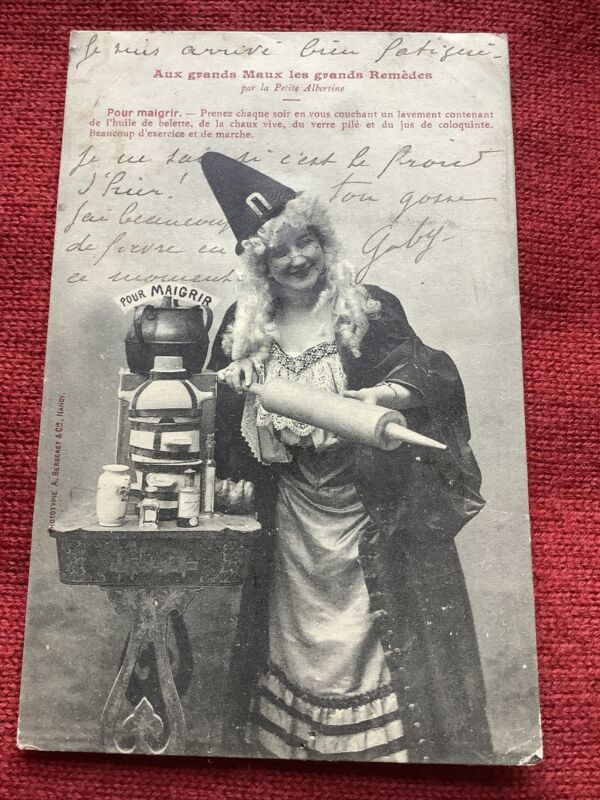 Je suis arrivé bien fatigué -
Aux grands Maux les grands Remèdes
par la Petite Albertine
Pour maigrir. — Prenez chaque soir en vous couchant un lavement contenant
de l'huile de belette, de la chaux vive, du verre pilé et du jus de coloquinte.
Beaucoup d'exercice et de marche.
Je ne sais si c'est le froid
d'hier!
j'ai beaucoup
de fièvre en
ce moment
ton gosse
Gaby -
POUR MAIGRIR
PHOTOTYPIE A. BERGERET & Cie, NANCY.